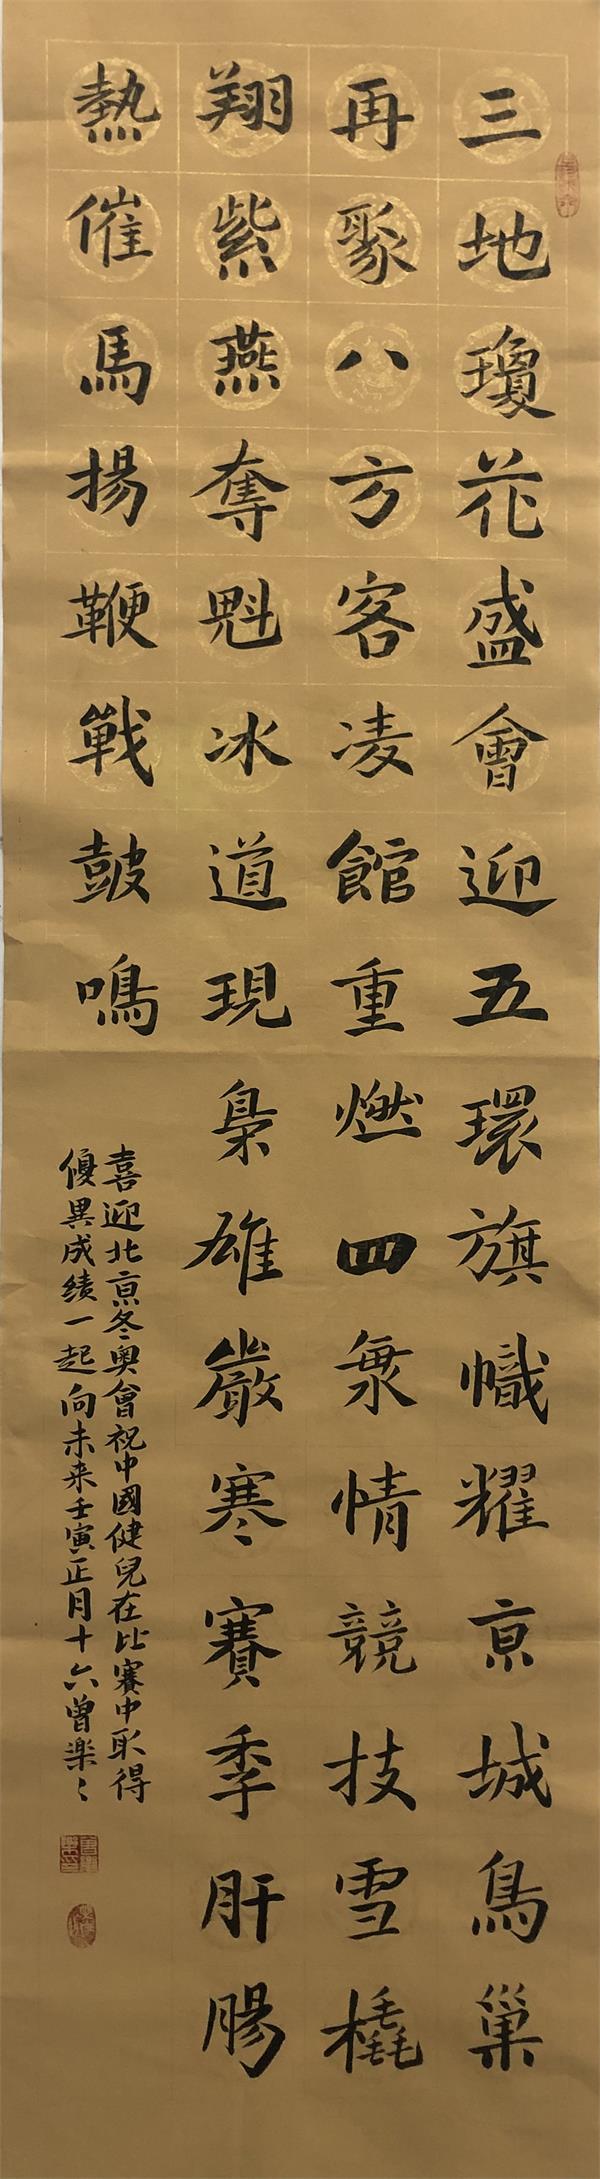 三地瓊花盛會迎五環旗幟耀亰城鳥巢
再聚八方客凌館重燃四衆情競技雪橇
翔紫燕奪魁冰道現梟雄嚴寒賽季肝腸
熱催馬揚鞭戰皷鳴
喜迎北亰冬奧會祝中國健兒在比賽中取得
優異成績一起向未来壬寅正月十六曾楽〻